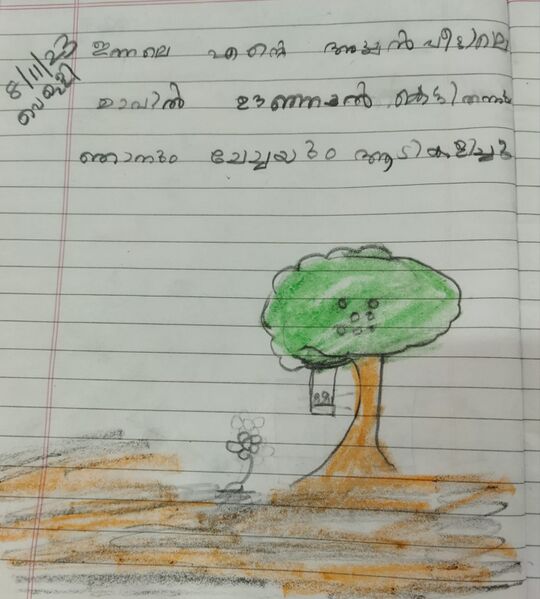 8/11/23
ഇന്നലെ എന്റെ അച്ഛൻ വീട്ടിലെ
മാവിൽ ഊഞ്ഞാൽ കെട്ടി തന്നു
ഞാനും ചേച്ചിയും ആടി കളിച്ചു